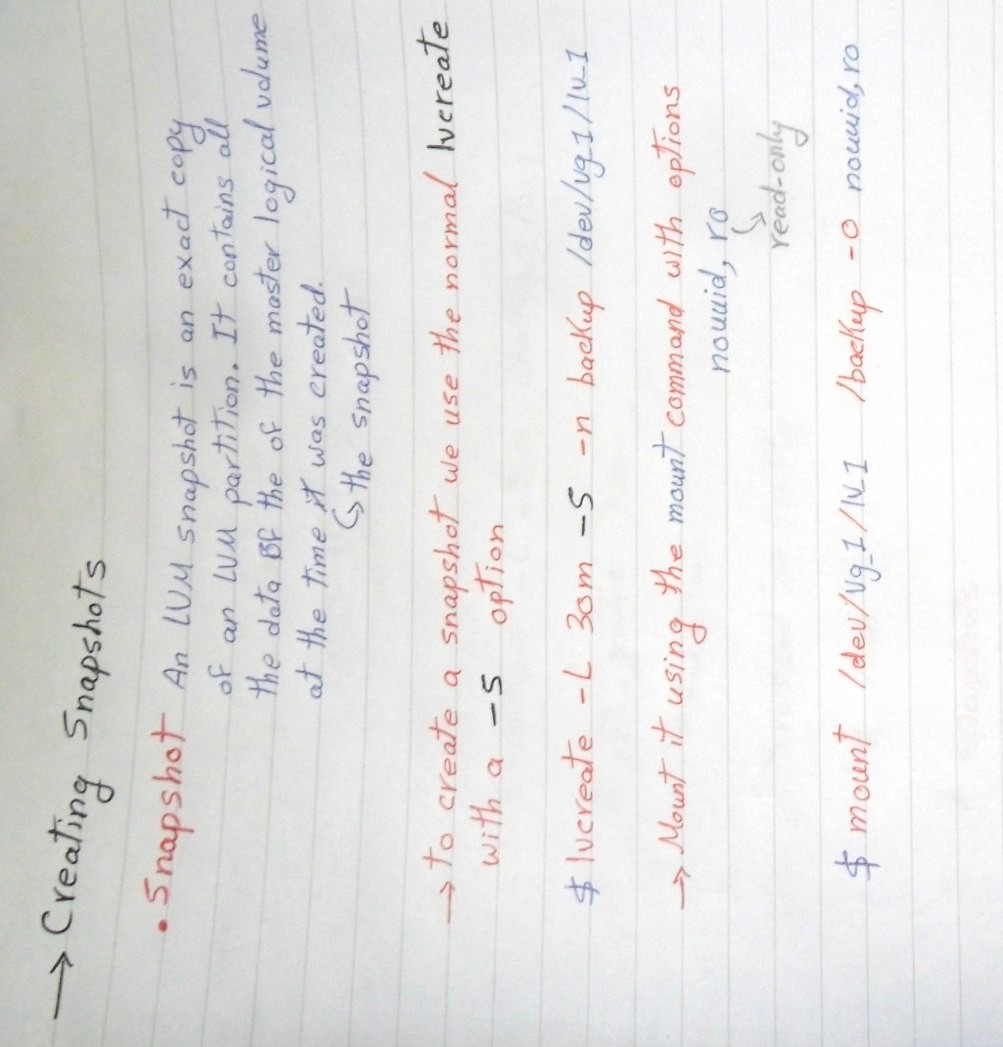 → Creating Snapshots
• Snapshot An LVM snapshot is an exact copy
of an LVM partition. It contains all
the data of the of the master logical volume
at the time it was created.
↳ the snapshot
→ To create a snapshot we use the normal lvcreate
with a -s option
$ lvcreate -L 30m -s -n backup /dev/vg_1/lv_1
→ Mount it using the mount command with options
nouuid, ro
↳ read-only
$ mount /dev/vg_1/lv_1 /backup -o nouuid, ro